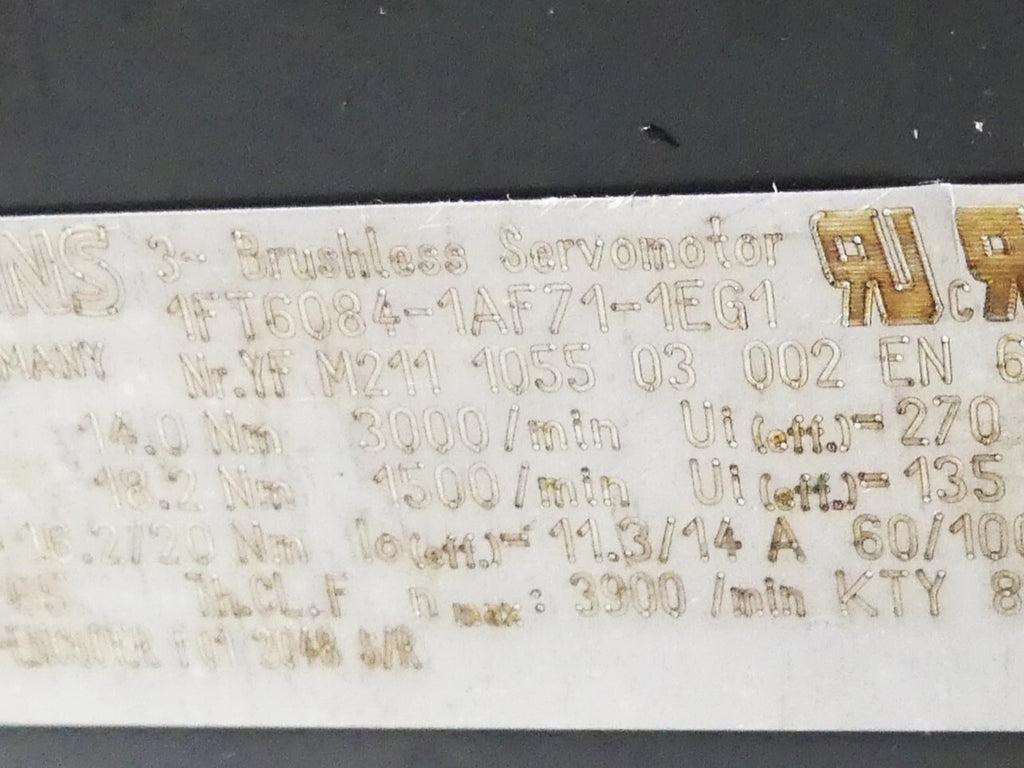 NS 3~ Brushless Servomotor
1FT6084-1AF71-1EG1
MANY Nr.YF M211 1055 03 002 EN 6
14.0 Nm 3000/min Ui(eff.)=270
18.2 Nm 1500/min Ui(eff.)=135
16.2/20 Nm Io(eff.)=11.3/14 A 60/100
Th.CL.F n max.: 3900 /min KTY 8
I 01 2048 S/R